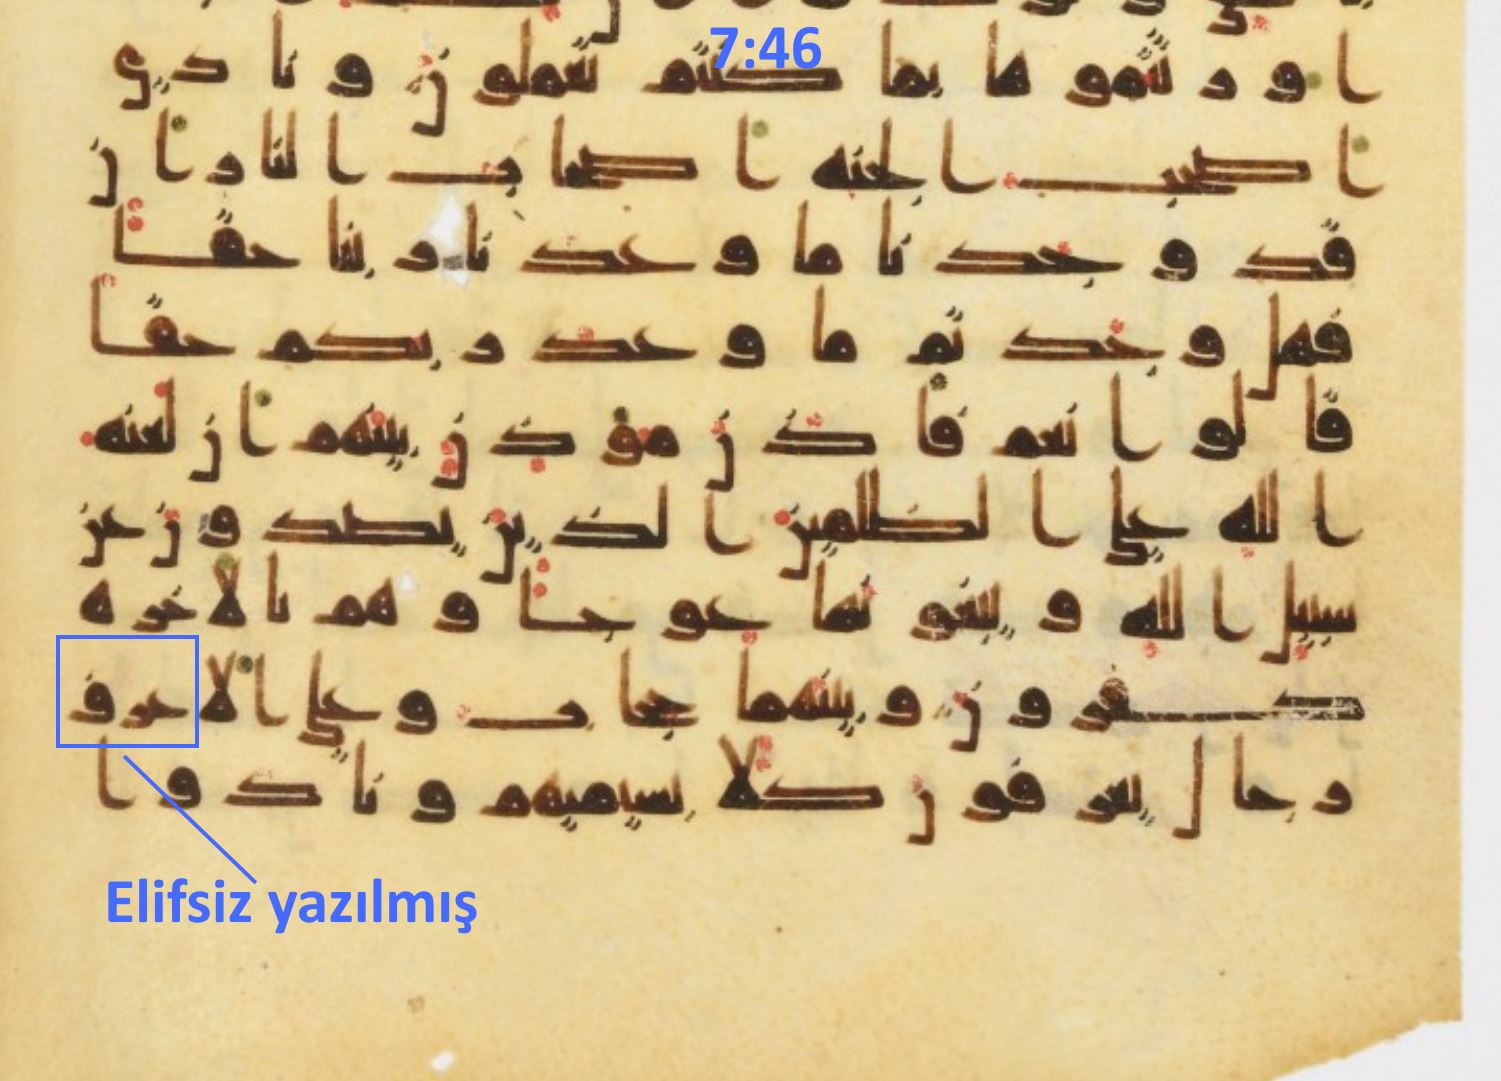 7:46
ا و ر ثتمو ها بما كنتم تعملو ن و نا دى
ا صحب ا لجنه ا صحا ب ا لنا ر ا ن
قد و جد نا ما و عد نا ر بنا حقا
فهل و جد تم ما و عد ر بكم حقا
قا لو ا نعم فا ذ ن مؤ ذ ن بينهم ا ن لعنه
ا لله على ا لظلمين ا لذ ين يصد و ن عن
سبيل ا لله و يبغو نها عو جا و هم با لا خر ه
كفر و ن و بينهما حجا ب و على ا لا عر ف
ر جا ل يعر فو ن كلا بسيميهم و نا د و ا
Elifsiz yazılmış